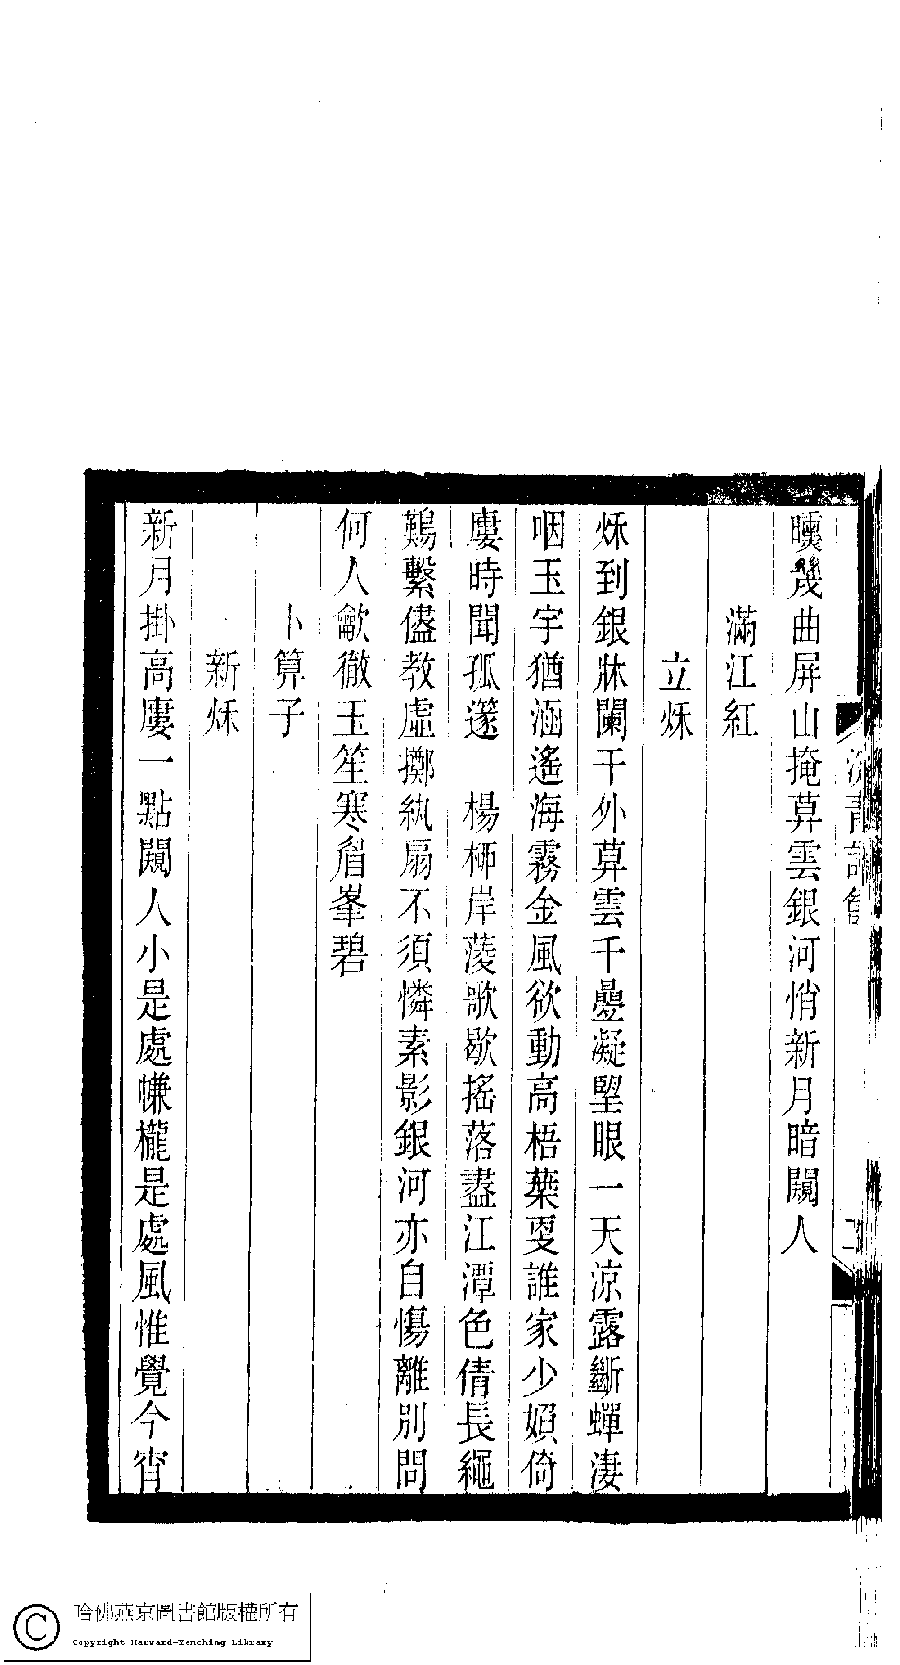 曛幾曲屏山掩莫雲銀河悄新月暗闚人
滿江紅
立秌
秌到銀牀闌干外莫雲千曡凝望眼一天涼露斷蟬淒
咽玉宇猶涵遙海霧金風欲動高梧葉㪅誰家少婦倚
廔時聞孤篴　楊桺岸菱歌歇搖落盡江潭色倩長繩
難繫儘教虛擲紈扇不須憐素影銀河亦自傷離別問
何人龡徹玉笙寒眉峯碧
卜算子
新秌
新月掛高廔一點闚人小是處㡘櫳是處風惟覺今宵
二
哈佛燕京圖書館版權所有
Copyright Harvard-Yenching Library